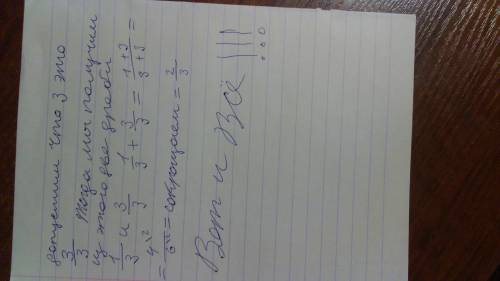 допустим что 3 это
3/3 Тогда мы получим
из этого две дроби
1/3 и 3/3 1/3 + 3/3 = 1+3/3+3 =
= 4/6 = сокращаем = 2/3
Вот и всё !!!